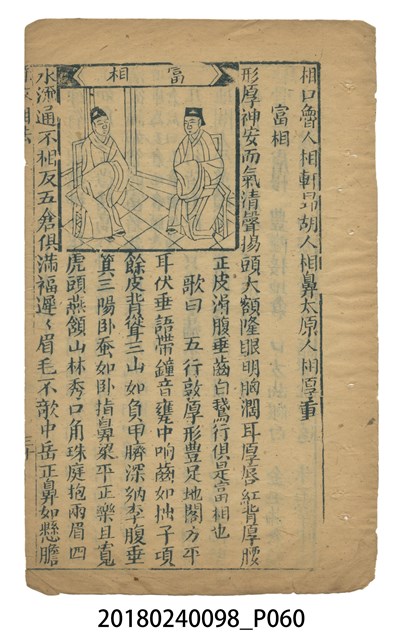 相口魯人相軒昻胡人相鼻太原人相厚重
富相
形厚神安而氣清聲揚頭大額隆眼明胸濶耳厚唇紅背厚腰
正皮滑腹垂齒白鵝行俱是富相也
歌曰五行敦厚形豐足地閣方平
耳伏垂語帶鐘音甕中响齒如拙子項
餘皮背聳三山如負甲臍深納李腹垂
箕三陽卧蚕如卧指鼻梁平正樂且寬
虎頭燕頷山林秀口角珠庭抱兩眉四
水流通不相反五倉俱滿福遲〻眉毛不散中岳正鼻如懸膽
富相
三十
20180240098_P060